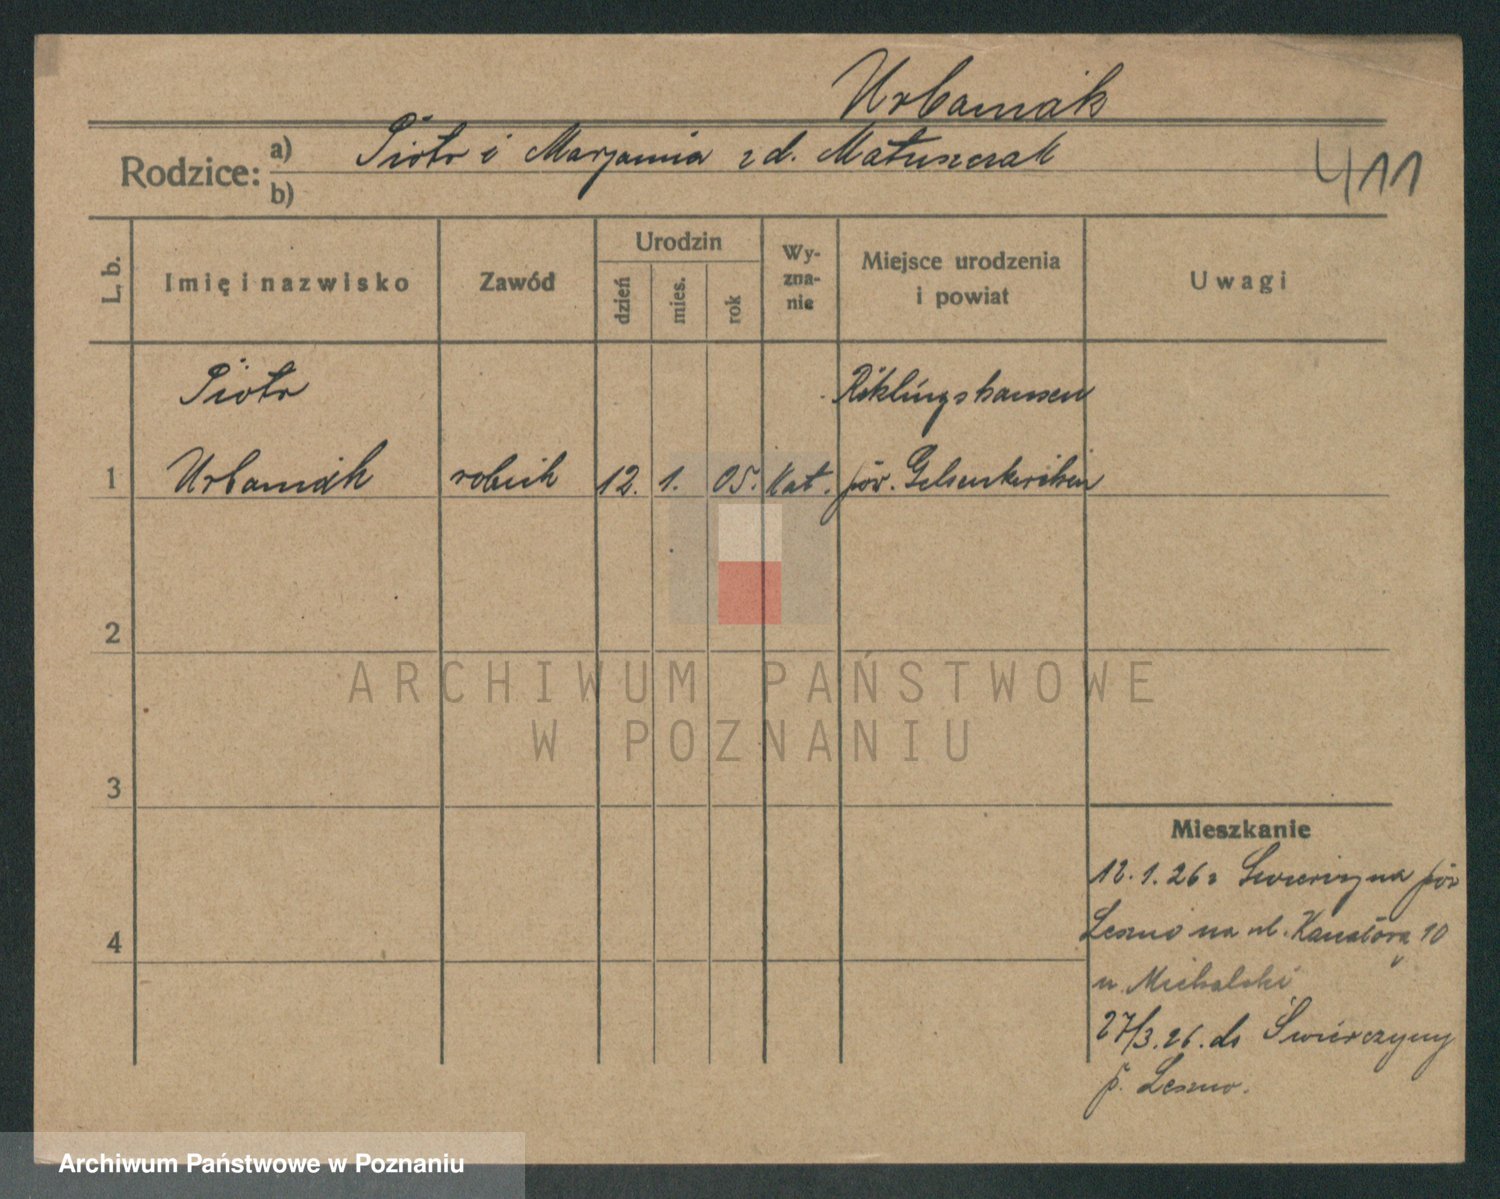 Urbaniak
Rodzice: a) Piotr i Marjanna z d. Matuszczak
b)
411
L. b.
Imię i nazwisko
Zawód
Urodzin
dzień
mies.
rok
Wy-
zna-
nie
Miejsce urodzenia
i powiat
Uwagi
Piotr Röklingshausen
1 Urbaniak robtnik 12. 1. 05. Kat. pow. Gelsenkirchen
2
ARCHIWUM PAŃSTWOWE
W POZNANIU
3
Mieszkanie
12.1.26 z Swierczyna pow
Leszno na ul. 10
4
u Michalski
27/3.26. do Świerczyny
p. Leszno.
Archiwum Państwowe w Poznaniu